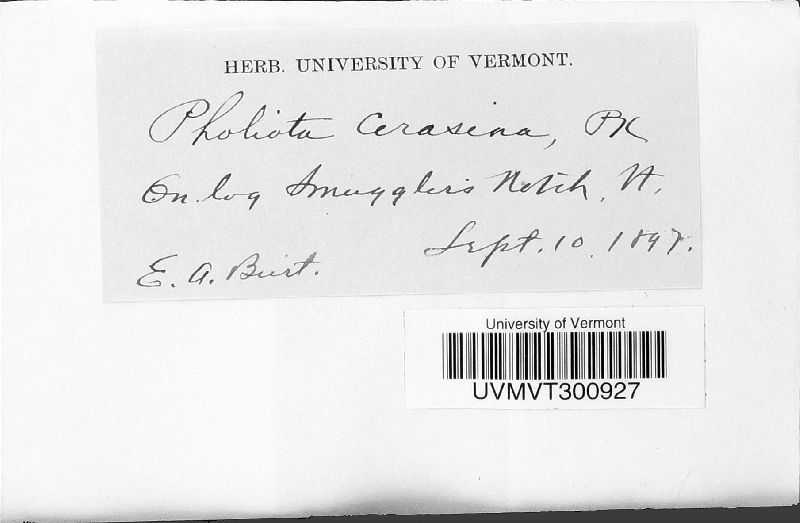 HERB. UNIVERSITY OF VERMONT.
Pholiota cerasina, Pk
On log Smuggler's Notch, Vt.
Sept. 10, 1897.
E. A. Burt.
University of Vermont
UVMVT300927